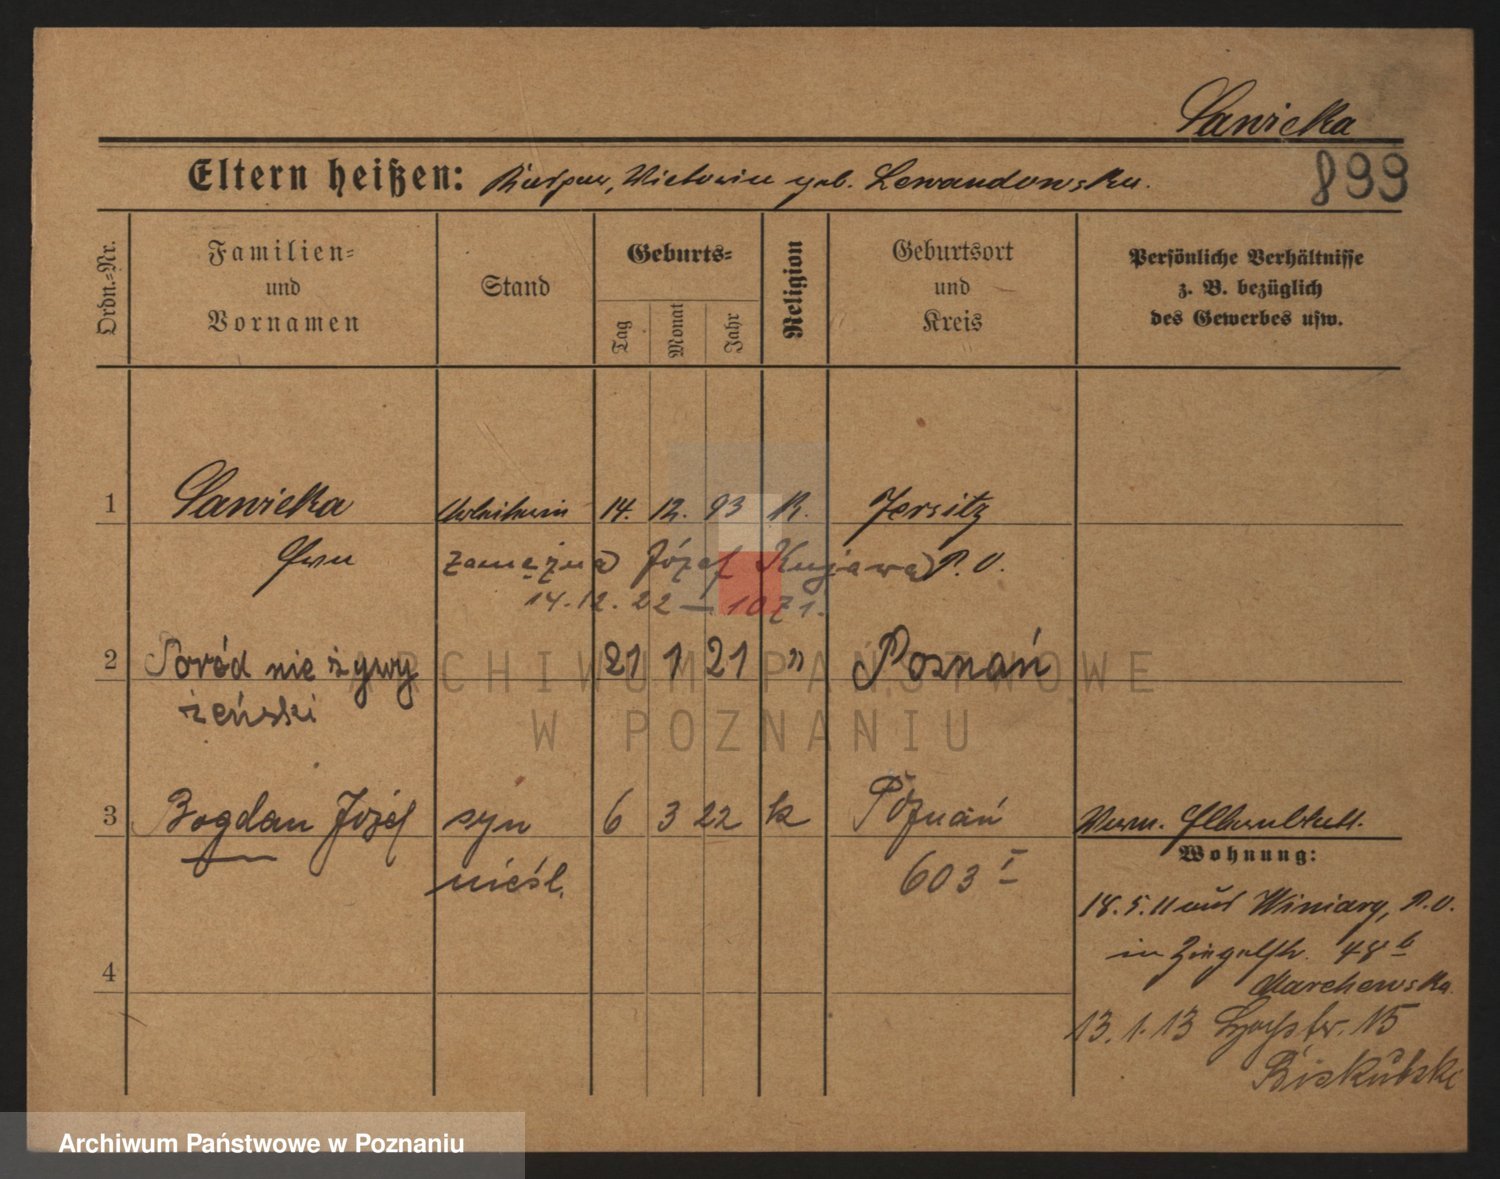 Sawicka
Eltern heißen: Kaspar, Victoria geb. Lewandowska.
899
Ordn.-Nr.
Familien-
und
Vornamen
Stand
Geburts-
Tag
Monat
Jahr
Religion
Geburtsort
und
Kreis
Persönliche Verhältnisse
z. B. bezüglich
des Gewerbes usw.
1 Sawicka Arbeiterin 14. 12. 93 K. Jersitz
Ewa zamężna Józef Kujawa P. O.
14.12.22 — 1071.
2 Poród nie żywy 21 1 21 " Poznań
żeński
ARCHIWUM PAŃSTWOWE
W POZNANIU
3 Bogdan Józef syn 6 3 22 k Poznań
nieśl. 603 I
Wohnung:
18.5.11 aus Winiary, P.O.
in Ziegelstr. 48 b
Marchewska
13.1.13 15
4
Archiwum Państwowe w Poznaniu